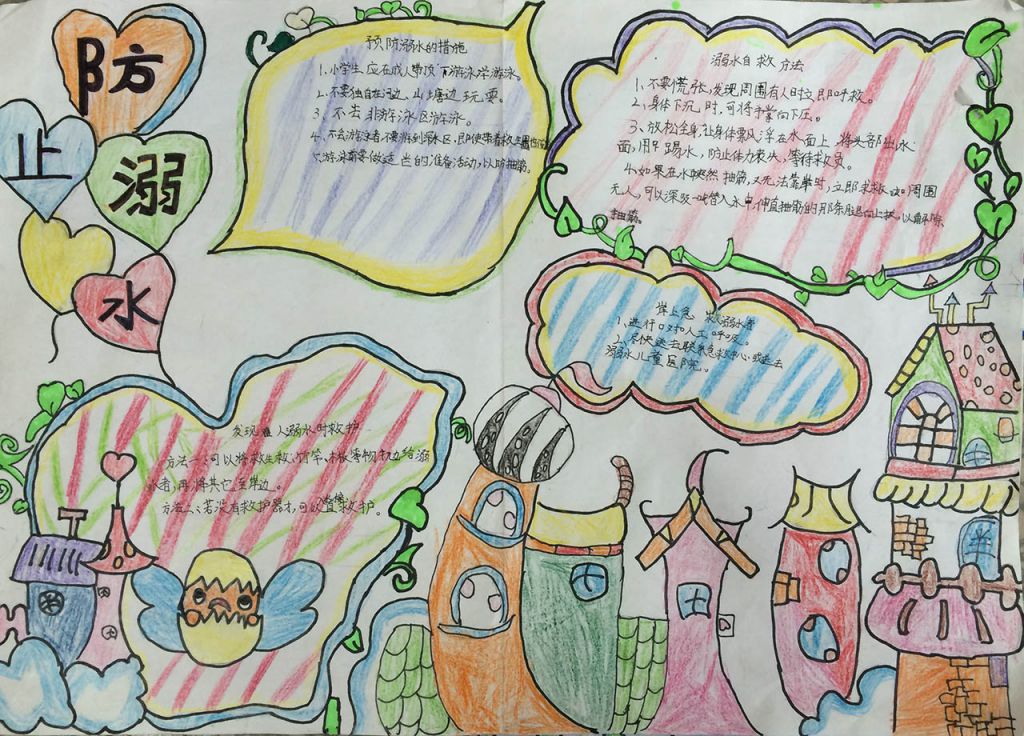 防
止
溺
水
预防溺水的措施
1、小学生应在成人带领下游泳学游泳。
2、不要独自在河边、山塘边玩耍。
3、不去非游泳区游泳。
4、不会游泳者不要游到深水区,即使带着救生圈
游泳前要做适当的准备活动,以防抽筋。
溺水自救方法
1、不要慌张,发现周围有人时立即呼救。
2、身体下沉时,可将手掌向下压。
3、放松全身,让身体飘浮在水面上,将头部出水
面,用脚踢水,防止体力丧失,等待救员。
4、如果在水中突然抽筋,又无法靠岸时,立即求救如周围
无人,可以深吸一气潜入水中,伸直抽筋的那条腿向上扳,以解除
抽筋。
岸上急救溺水者
1、进行口对口人工呼吸。
2、尽快送去联系急救中心或送去
溺水儿童医院。
发现人溺水时救护
方法一:可以将救生救、竹竿、木板等物抛给溺
水者,再将其它至岸边。
方法二、若没有救护器才,可以直接救护。